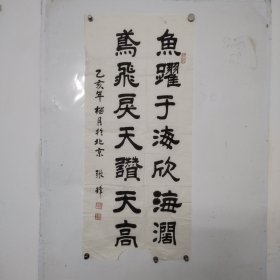 魚躍于海欣海濶
鳶飛戾天讚天高
乙亥年 月於北京 張